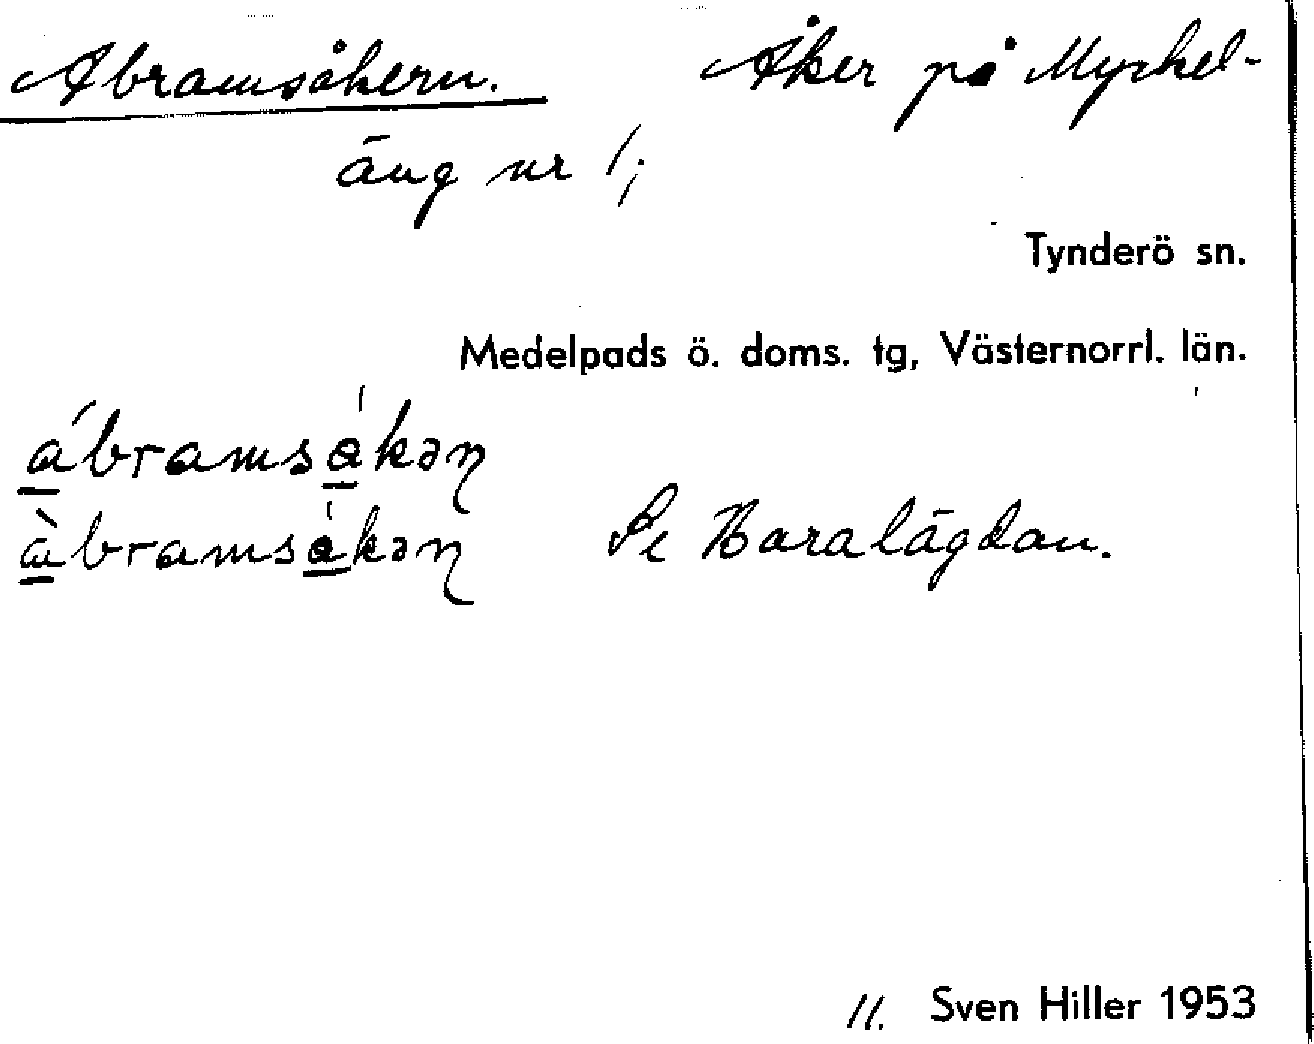 Abramsåkern. Åker på Myckel-
äng nr 1;
Tynderö sn.
Medelpads ö. doms. tg, Västernorrl. län.
ábramsákəṇ
àbramsákəṇ Se Haralägdan.
11. Sven Hiller 1953